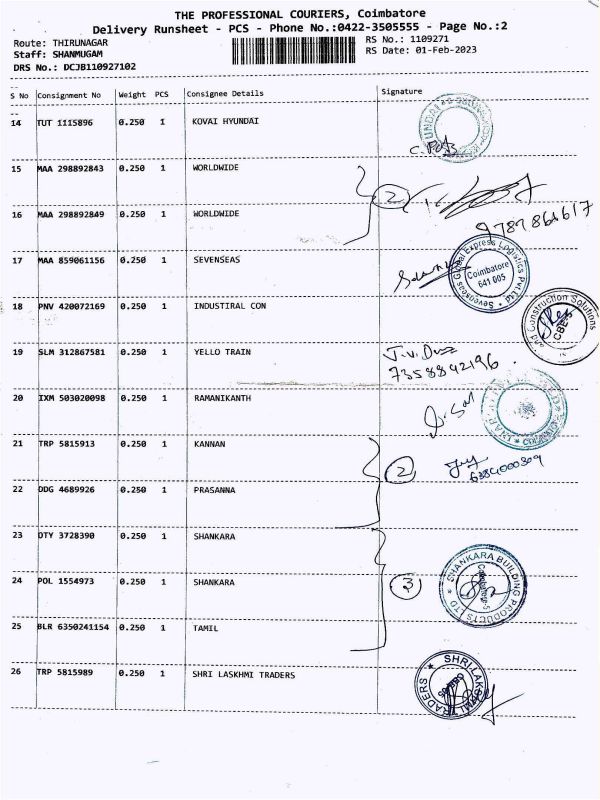 THE PROFESSIONAL COURIERS, Coimbatore
Delivery Runsheet - PCS - Phone No.:0422-3505555 - Page No.:2
Route: THIRUNAGAR RS No.: 1109271
Staff: SHANMUGAM RS Date: 01-Feb-2023
DRS No.: DCJB110927102
S No Consignment No Weight PCS Consignee Details Signature
14 TUT 1115896 0.250 1 KOVAI HYUNDAI
15 MAA 298892843 0.250 1 WORLDWIDE
2
16 MAA 298892849 0.250 1 WORLDWIDE
17 MAA 859061156 0.250 1 SEVENSEAS
Sevenseas Global Express Logistics Pvt Ltd
Coimbatore
641 005
18 PNV 420072169 0.250 1 INDUSTIRAL CON
and Construction Solutions
CBE-5
19 SLM 312867581 0.250 1 YELLO TRAIN
7358842196
20 IXM 503020098 0.250 1 RAMANIKANTH
21 TRP 5815913 0.250 1 KANNAN
2
6384000309
22 DDG 4689926 0.250 1 PRASANNA
23 OTY 3728390 0.250 1 SHANKARA
24 POL 1554973 0.250 1 SHANKARA
3
SHANKARA BUILDING PRODUCTS LTD
Coimbatore-5
25 BLR 6350241154 0.250 1 TAMIL
26 TRP 5815989 0.250 1 SHRI LASKHMI TRADERS
SHRI LAKSHMI TRADERS